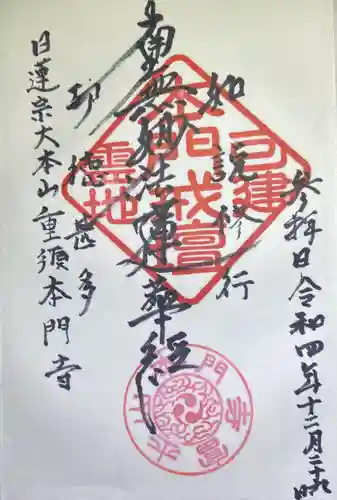 参拝日令和四年十二月二十九日
如説修行
南無妙法蓮華経
功徳甚多
日蓮宗大本山重須本門寺
本門戒壇
霊地